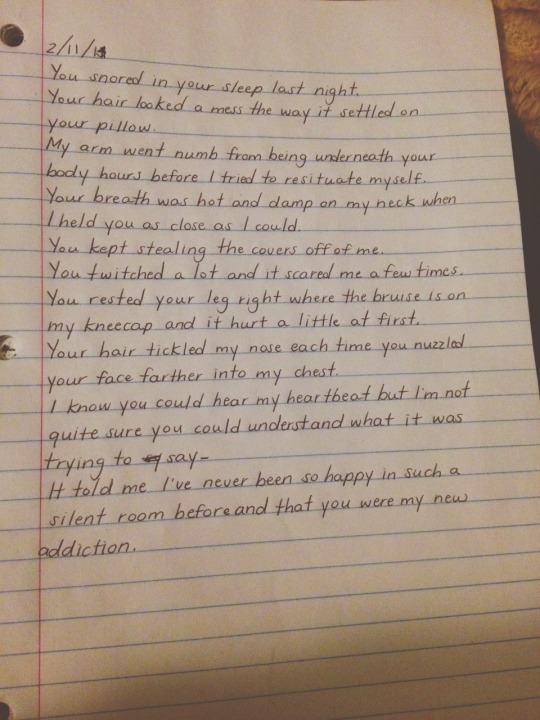 2/11/14
You snored in your sleep last night.
Your hair looked a mess the way it settled on
your pillow.
My arm went numb from being underneath your
body hours before I tried to resituate myself.
Your breath was hot and damp on my neck when
I held you as close as I could.
You kept stealing the covers off of me.
You twitched a lot and it scared me a few times.
You rested your leg right where the bruise is on
my kneecap and it hurt a little at first.
Your hair tickled my nose each time you nuzzled
your face farther into my chest.
I know you could hear my heartbeat but I'm not
quite sure you could understand what it was
trying to say-
It told me I've never been so happy in such a
silent room before and that you were my new
addiction.